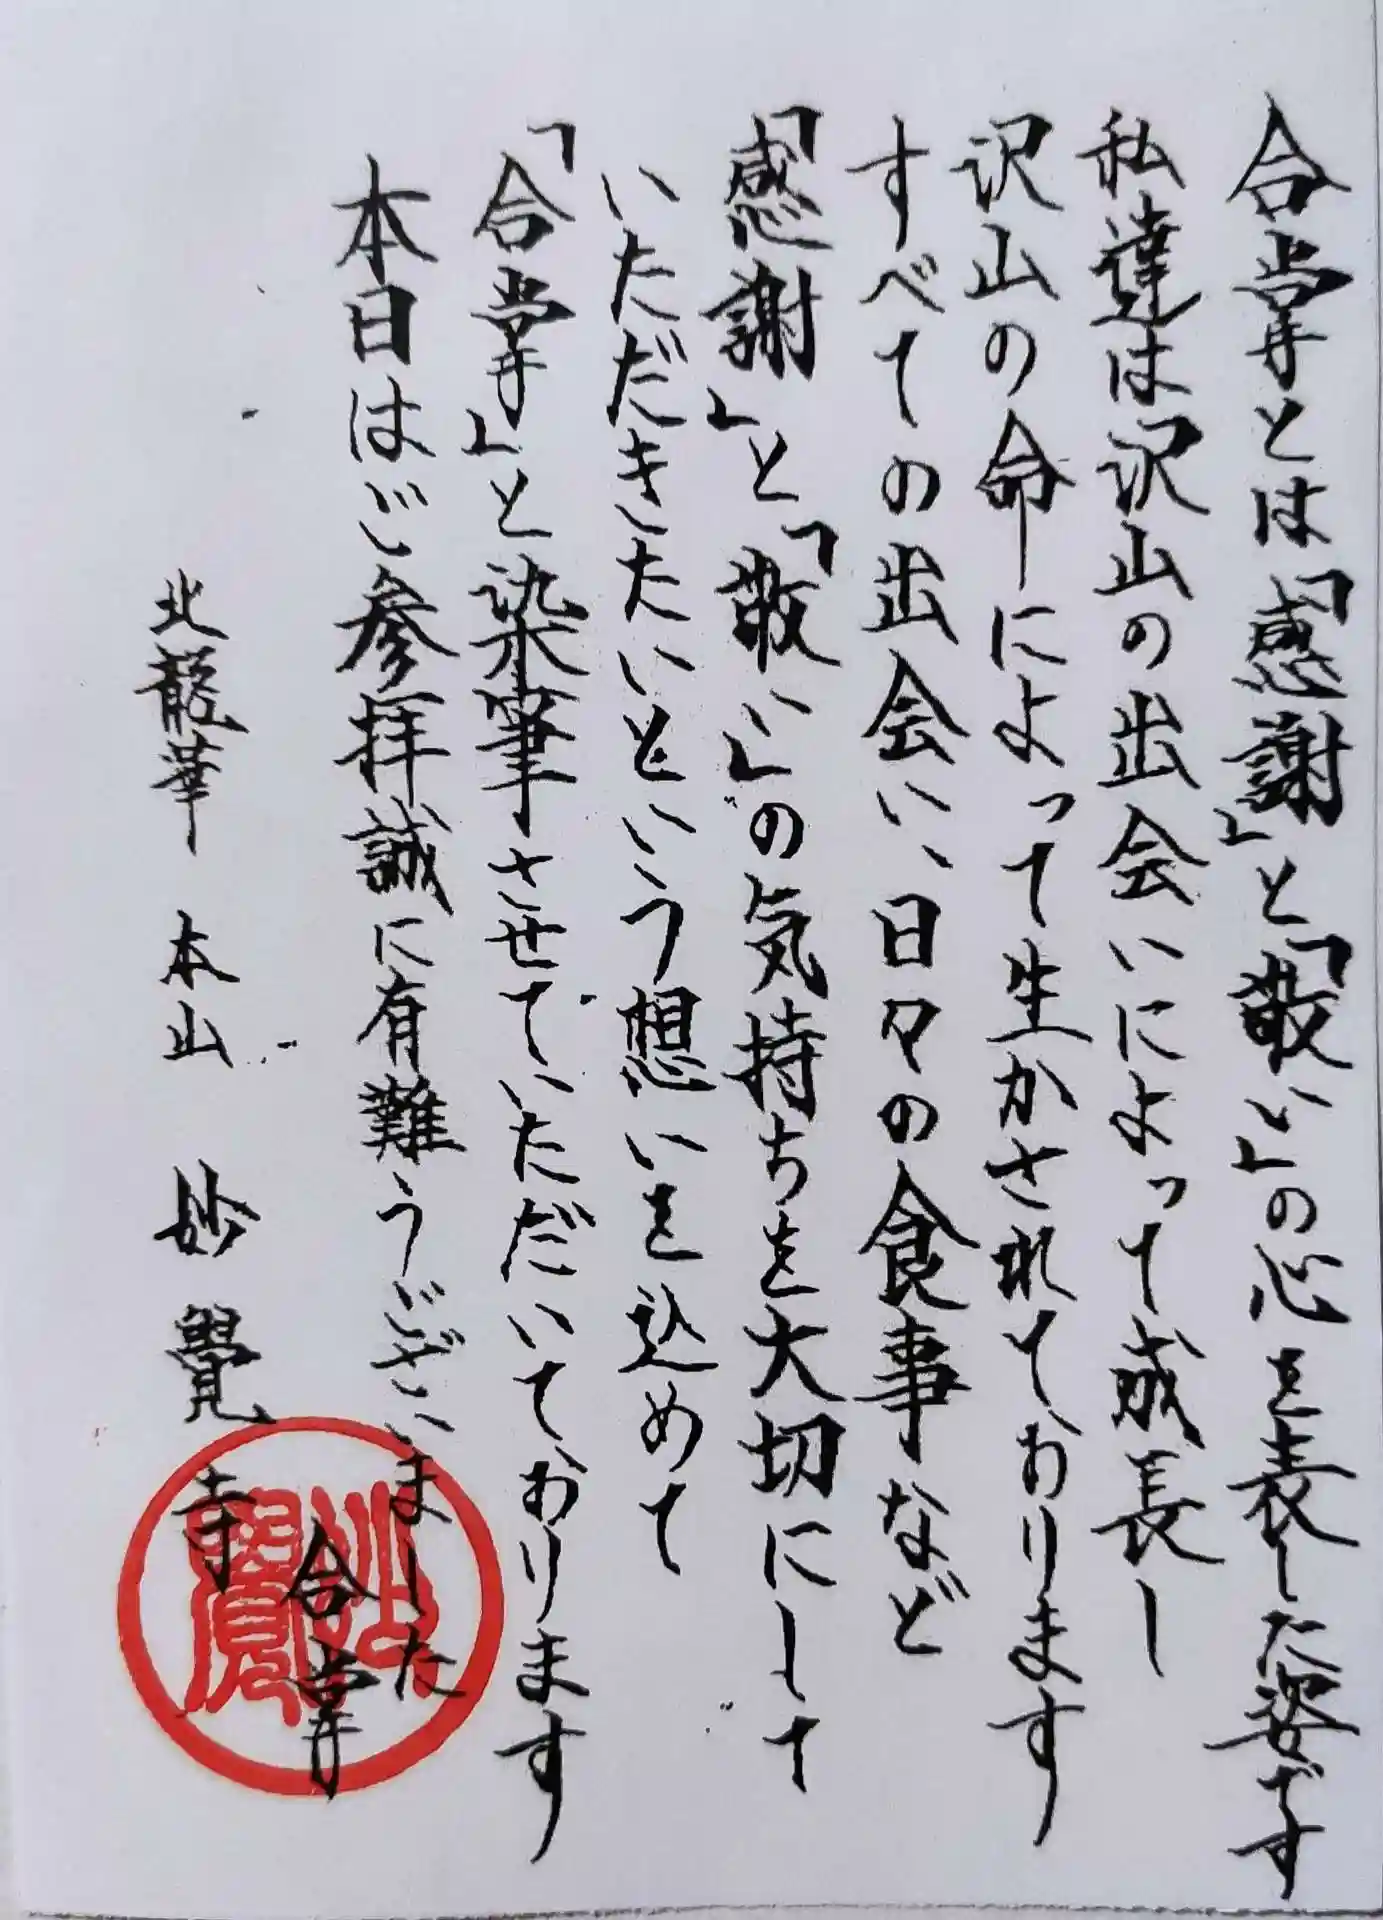 合掌とは「感謝」と「敬い」の心を表した姿です
私達は沢山の出会いによって成長し
沢山の命によって生かされております
すべての出会い、日々の食事など
「感謝」と「敬い」の気持ちを大切にして
いただきたいという想いを込めて
「合掌」と染筆させていただいております
本日はご参拝誠に有難うございました
合掌
北龍華 本山 妙覺寺
妙覺